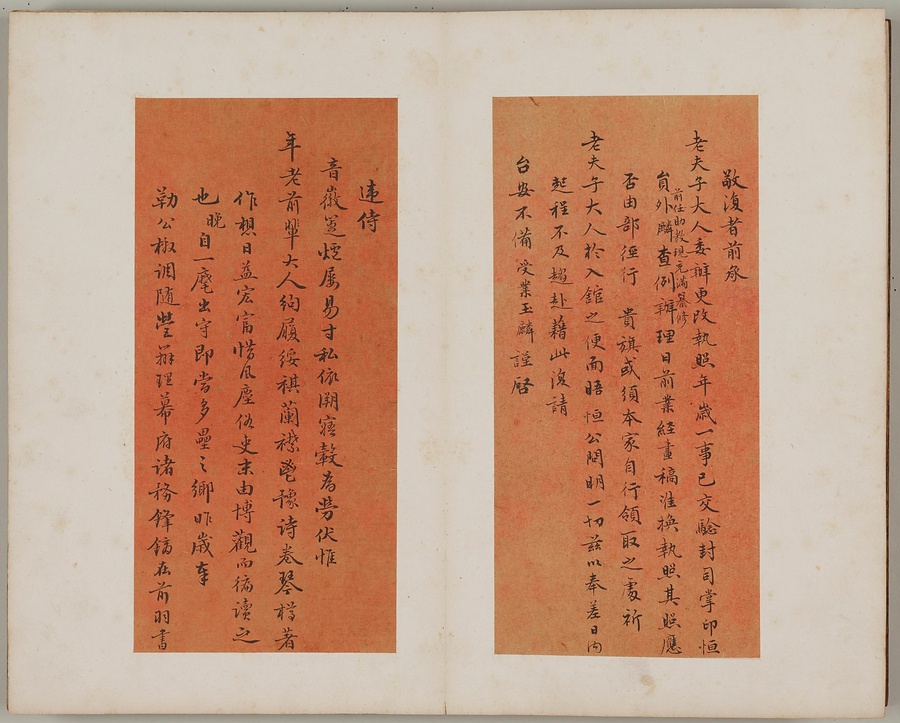 敬復者前承
老夫子大人委辦更改執照年歲一事已交驗封司掌印恒
員外麟查例辦理日前業經畫稿准換執照其照應
前任助教現充滿纂修
否由部徑行 貴旗或須本家自行領取之處祈
老夫子大人於入館之便面晤恒公問明一切茲以奉差日內
起程不及趨赴藉此復請
台安不備 受業玉麟謹啓
違侍
音徽篆煙屢易寸私依溯寤轂為勞伏惟
年老前輩大人絢履綏祺蘭襟鬯豫詩卷琴樽著
作想日益宏富惜風塵俗吏末由博觀而徧讀之
也晚自一麾出守即當多壘之鄉昨歲奉
勒公檄調隨營辦理幕府諸務鋒鏑在前羽書